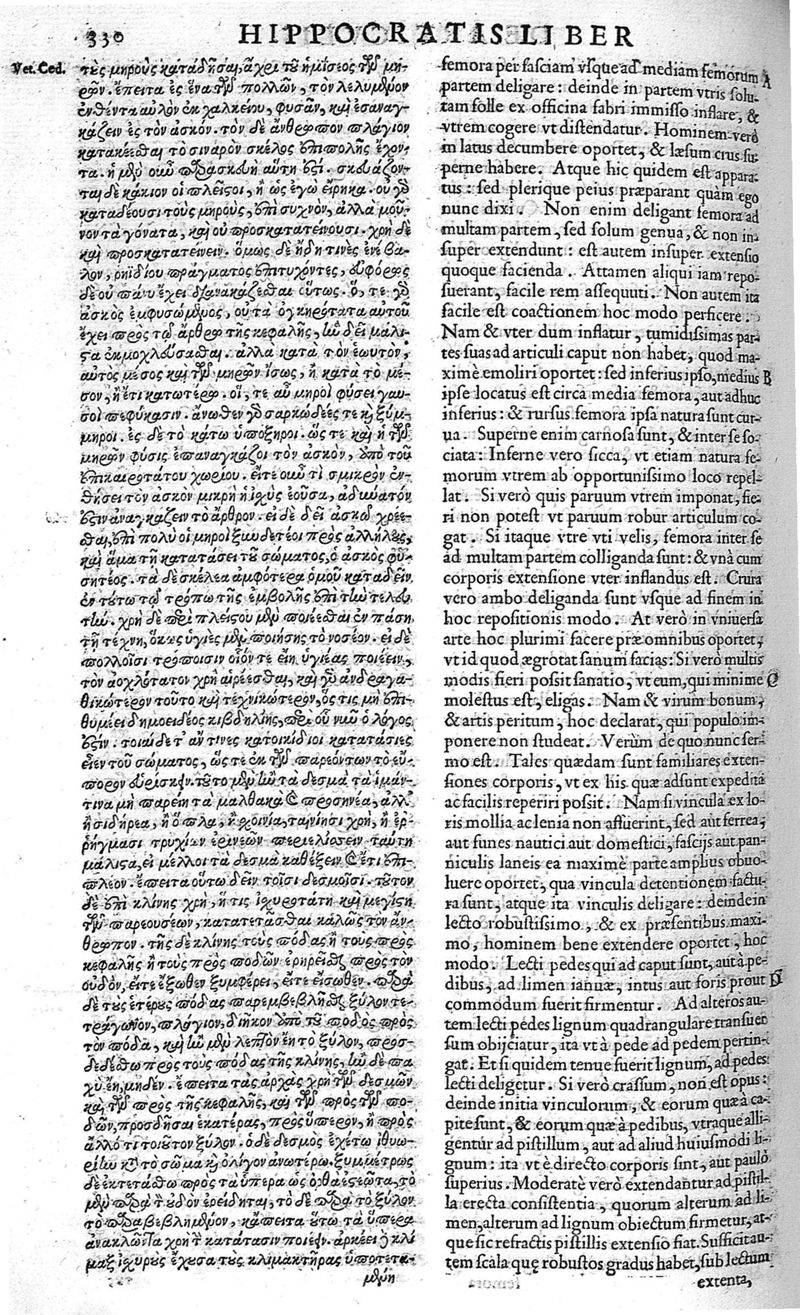 330 HIPPOCRATIS LIBER
Vet. Cod.
τοὺς μηροὺς καταδῆσαι, ἄχρι τοῦ ἡμίσεος τῶν μη-
ρῶν. ἔπειτα ἐς ἕνα τῶν ποδῶν, τὸν λελυμένον
ἐνθέντα αὐλὸν ἐκ χαλκείου, φυσᾶν, καὶ ἐσαναγ-
κάζειν ἐς τὸν ἀσκόν. τὸν δὲ ἄνθρωπον πλάγιον
κατακέεσθαι τὸ σιναρὸν σκέλος ἐπιπολῆς ἔχον-
τα. ἡ μὲν οὖν παρασκευὴ αὕτη ἐστί. σκευάζον-
ται δὲ κάκιον οἱ πλεῖστοι, ἢ ὡς ἐγὼ εἴρηκα. οὐ γὰρ
καταδέουσι τοὺς μηροὺς, ἐπὶ συχνὸν, ἀλλὰ μοῦ-
νον τὰ γόνατα, καὶ οὐ προσκατατείνουσι. χρὴ δὲ
καὶ προσκατατείνειν. ὅμως δὲ ἤδη τινὲς ἐνέβα-
λον, ῥηϊδίου πράγματος ἐπιτυχόντες, εὐφόρως
δὲ οὐ πάνυ ἔχει διανακάζεσθαι οὕτως. ὅ, τε γὰρ
ἀσκὸς ἐμφυσώμενος, οὐ τὰ ὀγκηρότατα αὐτοῦ
ἔχει πρὸς τῷ ἄρθρῳ τῆς κεφαλῆς, ἣν δεῖ μάλι-
στα ἐκμοχλεύσασθαι. ἀλλὰ κατὰ τὸν ἑωυτὸν,
αὐτὸς μέσος καὶ τῶν μηρῶν ἴσως, ἢ κατὰ τὸ μέ-
σον, ἢ ἔτι κατωτέρω. οἵ, τε αὖ μηροὶ φύσει γαυ-
σοὶ πεφύκασιν. ἄνωθεν γὰρ σαρκώδεές τε καὶ ξύμ-
μηροι. ἐς δὲ τὸ κάτω ὑπόξηροι. ὥς τε καὶ ἡ τῶν
μηρῶν φύσις ἐπαναγκάζοι τὸν ἀσκὸν, ὑπὸ τοῦ
ἐπικαιροτάτου χωρίου. εἴτε οὖν τι σμικρὸν ἐν-
θήσει τὸν ἀσκὸν μικρὴ ἡ ἰχὺς ἐοῦσα, ἀδύνατον
ἐστὶν ἀναγκάζειν τὸ ἄρθρον. εἰ δὲ δεῖ ἀσκῷ χρέε-
σθαι, ἐπὶ πολὺ οἱ μηροὶ ξυνδετέοι πρὸς ἀλλήλους,
καὶ ἅμα τῇ κατατάσει τοῦ σώματος, ὁ ἀσκὸς φυ-
σητέος. τὰ δὲ σκέλεα ἀμφότερα ὁμοῦ καταδεῖν
ἐν τούτῳ τῷ τρόπῳ τῆς ἐμβολῆς ἐπὶ τὴν τελευ-
τήν. χρὴ δὲ περὶ πλείστου μὲν ποιέεσθαι ἐν πάσῃ
τῇ τέχνῃ, ὅκως ὑγιὲς μὲν ποιήσῃς τὸ νοσέον. εἰ δὲ
πολλοῖσι τρόποισιν οἷόν τε εἴη ὑγιέας ποιέειν,
τὸν ἀοχλότατον χρὴ αἱρέεσθαι, καὶ γὰρ ἀνδραγα-
θικώτερον τοῦτο καὶ τεχνικώτερον, ὅς τις μὴ ἐπι-
θυμέει δημοειδέος κιβδηλίης, περὶ οὗ νῦν ὁ λόγος
ἐστίν. τοιαίδε τ' ἄν τινες κατοικίδιοι κατατάσιες
εἶεν τοῦ σώματος, ὥς τε ἐκ τῶν παρεόντων τὸ εὔ-
πορον εὑρίσκειν. τοῦτο μὲν ἢν τὰ δεσμὰ τὰ ἱμάν-
τινα μὴ παρείη τὰ μαλθακὰ καὶ προσηνέα, ἀλλ'
ἢ σιδήρεα, ἢ ὅπλα, ἢ σχοινία, ταινίῃσι χρὴ, ἢ ἐρ-
ρήγμασι τρυχίων ἐρινέων περιελίσσειν ταύτῃ
μάλιστα, εἰ μέλλοι τὰ δεσμὰ καθέξειν καὶ ἔτι ἐπι-
πλέον. ἔπειτα οὕτω δεῖν τοῖσι δεσμοῖσι. τοῦτον
δὲ ἐπὶ κλίνης χρὴ, ἥ τις ἰχυροτάτη καὶ μεγίστη
τῶν παρεουσέων, κατατετάσθαι καλῶς τὸν ἄν-
θρωπον. τῆς δὲ κλίνης τοὺς πόδας ἢ τοὺς πρὸς
κεφαλῆς ἢ τοὺς πρὸς ποδῶν ἐρηρεῖσθαι πρὸς τὸν
οὐδὸν, εἴτε ἔξωθεν ξυμφέρει, εἴτε εἴσωθεν. παρὰ
δὲ τοὺς ἑτέρους πόδας παρεμβεβλῆσθαι ξύλον τε-
τράγωνον, πλάγιον, διῆκον ἀπὸ τοῦ ποδὸς πρὸς
τὸν πόδα, καὶ ἢν μὲν λεπτὸν ᾖ τὸ ξύλον, προσ-
δεδέσθω πρὸς τοὺς πόδας τῆς κλίνης, ἢν δὲ πα-
χὺ ᾖ, μηδέν. ἔπειτα τὰς ἀρχὰς χρὴ τῶν δεσμῶν
καὶ τῶν πρὸς τῆς κεφαλῆς, καὶ τῶν πρὸς τῶν πο-
δῶν, προσδῆσαι ἑκατέρας, πρὸς ὕπερον, ἢ πρὸς
ἄλλό τι τοιοῦτον ξύλον. ὁ δὲ δεσμὸς ἐχέτω ἰθυω-
ρίην κατὰ τὸ σῶμα καὶ ὀλίγον ἀνωτέρω. ξυμμέτρως
δὲ ἐκτετάσθω πρὸς τὰ ὕπερα ὡς ὀρθὰ ἑστεῶτα, τὸ
μὲν παρὰ τὸν οὐδὸν ἐρείδηται, τὸ δὲ παρὰ τὸ ξύλον
τὸ παραβεβλημένον, κἄπειτα οὕτω τὰ ὕπερα
ἀνακλῶντα χρὴ τὴν κατάτασιν ποιέειν. ἀρκέει καὶ κλί-
μαξ ἰχυροὺς ἔχουσα τοὺς κλιμακτῆρας ὑποτετα-
μένη
femora per fasciam vsque ad mediam femorum A
partem deligare: deinde in partem vtris solu-
tam folle ex officina fabri immisso inflare, &
vtrem cogere vt distendatur. Hominem verò
in latus decumbere oportet, & læsum crus su-
perne habere. Atque hic quidem est appara-
tus: sed plerique peius præparant quàm ego
nunc dixi. Non enim deligant femora ad
multam partem, sed solum genua, & non in-
super extendunt: est autem insuper extensio
quoque facienda. Attamen aliqui iam repo-
suerant, facile rem assequuti. Non autem ita
facile est coactionem hoc modo perficere:
Nam & vter dum inflatur, tumidissimas par-
tes suas ad articuli caput non habet, quod ma-
ximè emoliri oportet: sed inferius ipso, medius B
ipse locatus est circa media femora, aut adhuc
inferius: & rursus femora ipsa natura sunt cur-
ua. Superne enim carnosa sunt, & inter se so-
ciata: Inferne vero sicca, vt etiam natura fe-
morum vtrem ab opportunissimo loco repel-
lat. Si verò quis paruum vtrem imponat, fie-
ri non potest vt paruum robur articulum co-
gat. Si itaque vtre vti velis, femora inter se
ad multam partem colliganda sunt: & vnà cum
corporis extensione vter inflandus est. Crura
vero ambo deliganda sunt vsque ad finem in
hoc repositionis modo. At verò in vniuersa
arte hoc plurimi facere præ omnibus oportet,
vt id quod ægrotat sanum facias: Si verò multis
modis fieri possit sanatio, vt eum, qui minime C
molestus est, eligas. Nam & virum bonum,
& artis peritum, hoc declarat, qui populo im-
ponere non studeat. Verùm de quo nunc ser-
mo est. Tales quædam sunt familiares exten-
siones corporis, vt ex his quæ adsunt expedita
ac facilis reperiri possit. Nam si vincula ex lo-
ris mollia ac lenia non affuerint, sed aut ferrea,
aut funes nautici aut domestici, fascijs aut pan-
niculis laneis ea maximè parte amplius obuo-
luere oportet, qua vincula detentionem factu-
ra sunt, atque ita vinculis deligare: deinde in
lecto robustissimo, & ex præsentibus maxi-
mo, hominem bene extendere oportet, hoc
modo. Lecti pedes qui ad caput sunt, aut à pe-
dibus, ad limen ianuæ, intus aut foris prout D
commodum fuerit firmentur. Ad alteros au-
tem lecti pedes lignum quadrangulare transuer
sum obijciatur, ita vt à pede ad pedem pertin-
gat. Et si quidem tenue fuerit lignum, ad pedes
lecti deligetur. Si verò crassum, non est opus:
deinde initia vinculorum, & eorum quæ à ca-
pite sunt, & eorum quæ à pedibus, vtraque alli-
gentur ad pistillum, aut ad aliud huiusmodi li-
gnum: ita vt è directo corporis sint, aut paulò
superius. Moderatè verò extendantur ad pistil-
la erecta consistentia, quorum alterum ad li-
men, alterum ad lignum obiectum firmetur, at-
que sic refractis pistillis extensio fiat. Sufficit au-
tem scala quę robustos gradus habet, sub lectum
extenta,